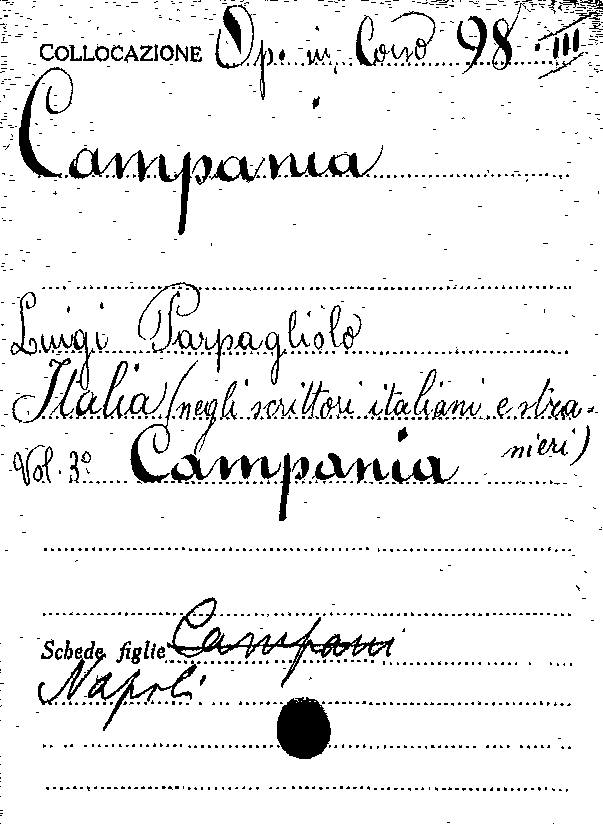 COLLOCAZIONE Op. in Corso 98. III
Campania
Luigi Parpagliolo
Italia (negli scrittori italiani e stra-
nieri)
Vol. 3º Campania
Schede figlie Campani
Napoli